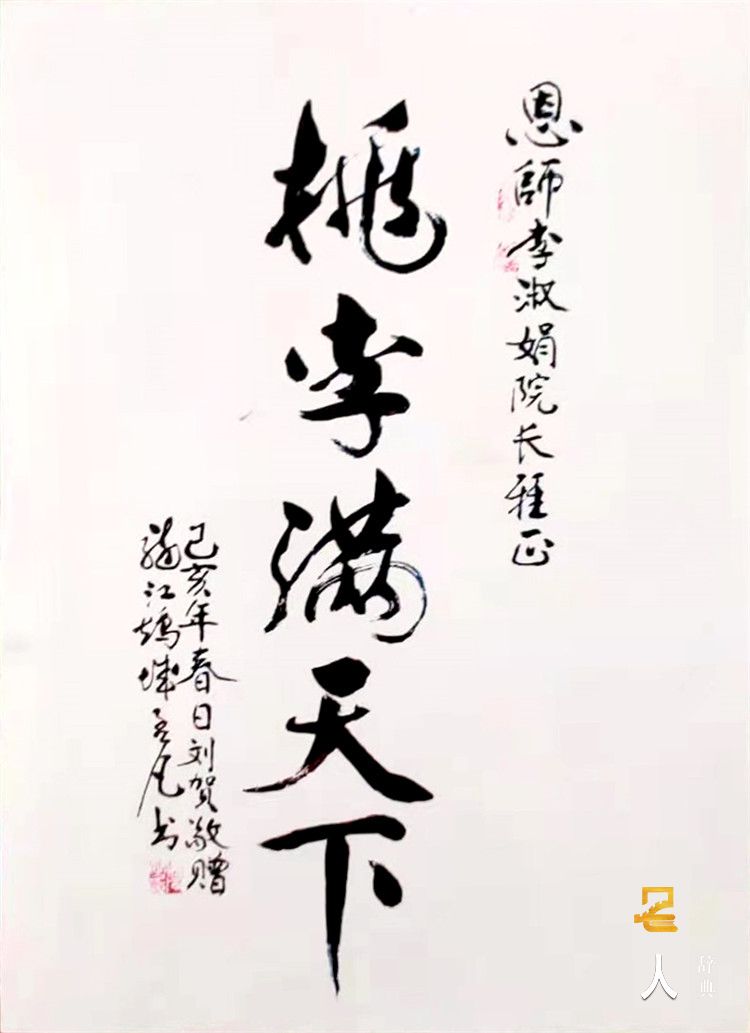 恩師李淑娟院长雅正
桃李满天下
己亥年春日刘贺敬赠
江鹤城孟凡书
名人
辞典